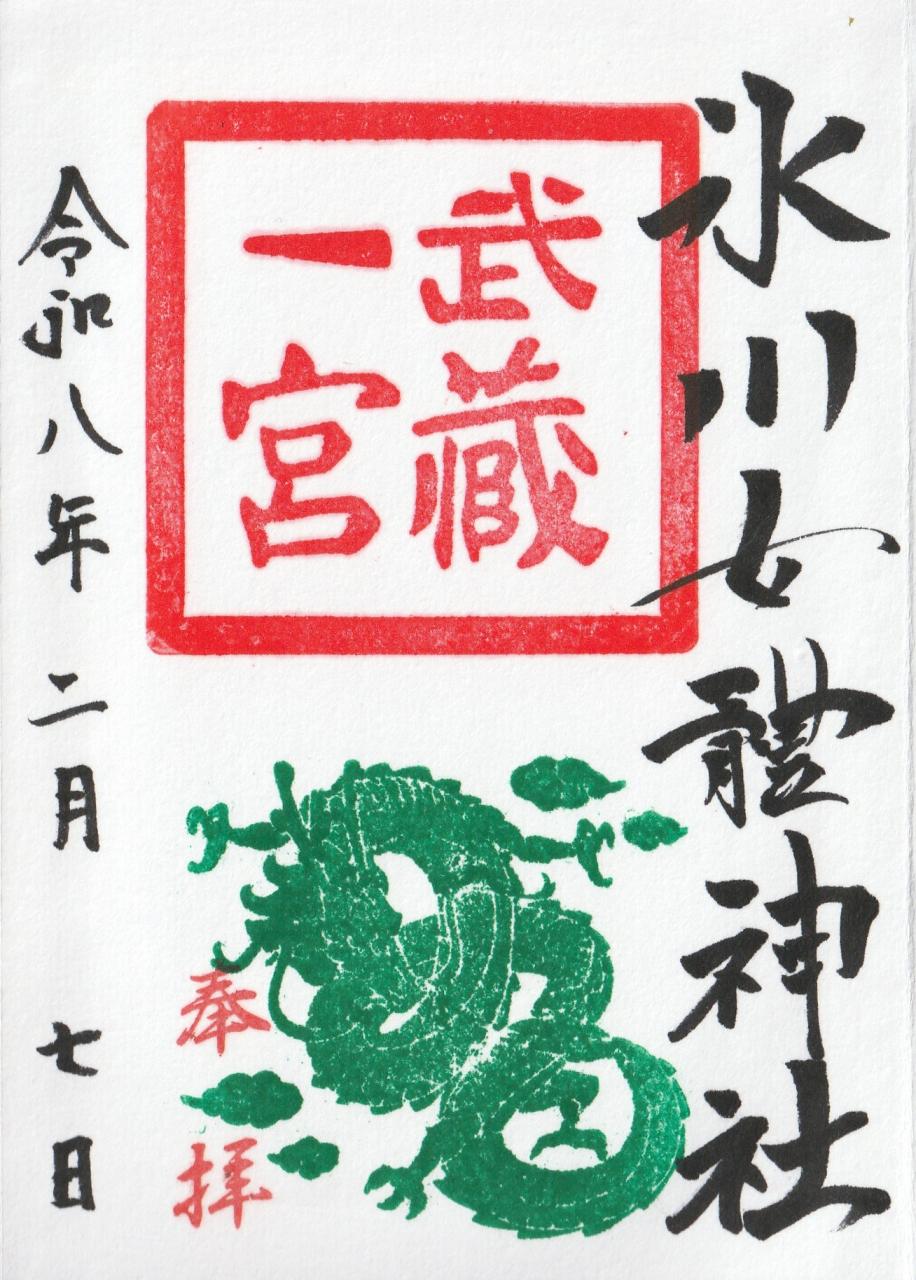 氷川女體神社
武藏
一宮
奉拝
令和八年二月七日